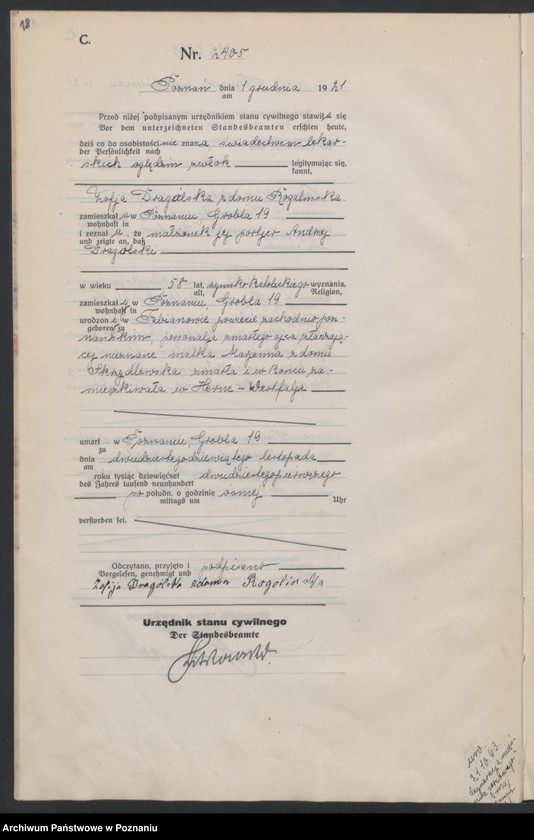 18
C.
Nr. 2405
Poznań dnia 1 grudnia 1921
am
Przed niżej podpisanym urzędnikiem stanu cywilnego stawiła się
Vor dem unterzeichneten Standesbeamten erschien heute,
dziś co do osobistości nie znana, świadectwem lekar-
der Persönlichkeit nach
skich oględzin zwłok legitymując się,
kannt,
Zofja Dragolska z domu Rogalinska
zamieszkała w Poznaniu Grobla 19
wohnhaft in
i zeznała, że małżonek jej portjer Andrzej
und zeigte an, daß
Dragolski
w wieku 58 lat, rzymsko katolickiego wyznania,
alt, Religion,
zamieszkały w Poznaniu, Grobla 19
wohnhaft in
urodzony w Fabianowie powiecie zachodnio poz-
geboren zu
nańskim, personalja zmarłego ojca
nieznane matka Marjanna z domu
zmarła i w końcu za-
mieszkiwała w Herne - Westfalja
umarł w Poznaniu, Grobla 19
zu
dnia dwudziestego dziewiątego listopada
am
roku tysiąc dziewięćset dwudziestego pierwszego
des Jahres tausend neunhundert
po połudn. o godzinie osmej
mittags um Uhr
verstorben sei.
Odczytano, przyjęto i podpisano
Vorgelesen, genehmigt und
Zofija Dragolska zdomu
Urzędnik stanu cywilnego
Der Standesbeamte
Archiwum Państwowe w Poznaniu